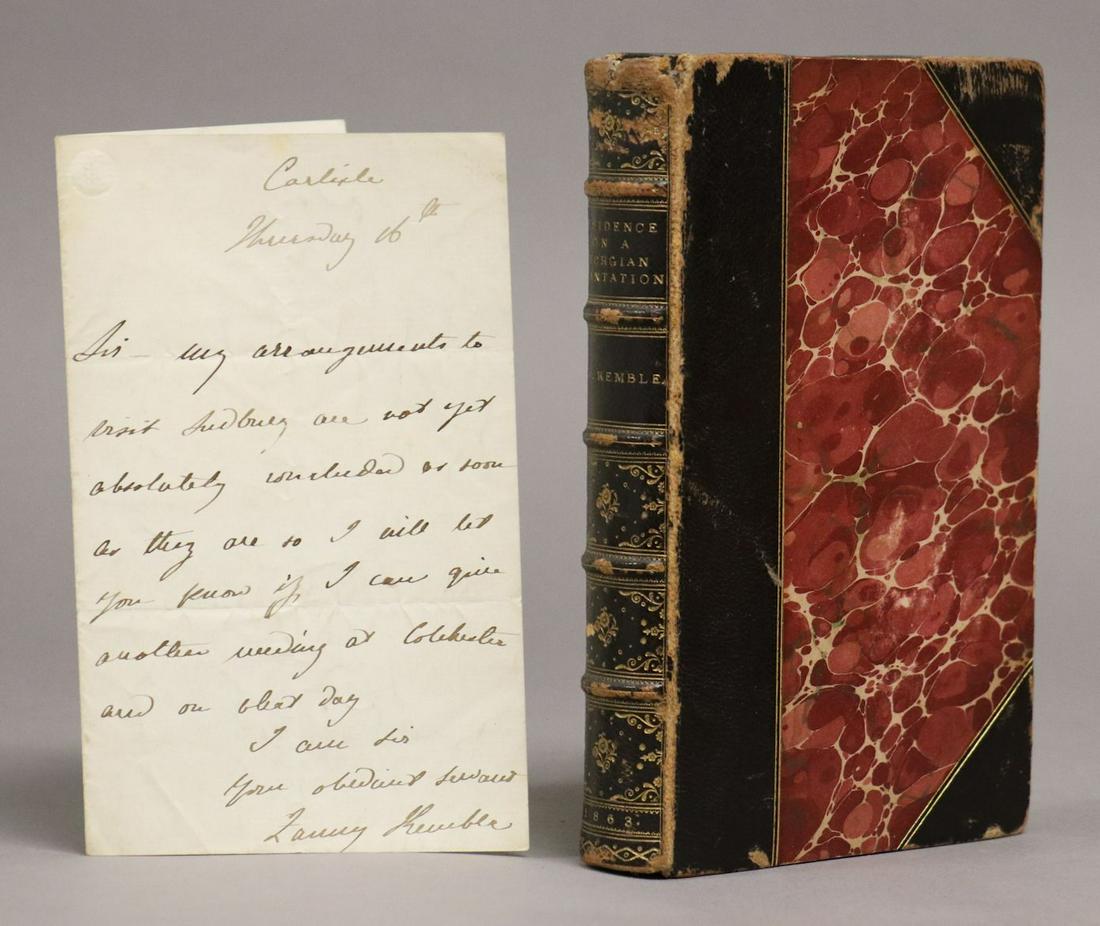 Carlisle
Thursday 16th
Sir - my arrangements to
visit Sudbury are not yet
absolutely concluded as soon
as they are so I will let
you know if I can give
another reading at Colchester
and on what day
I am Sir
Your obedient servant
Fanny Kemble
IDENCE
ON A
RGIAN
NTATION
KEMBLE
1863